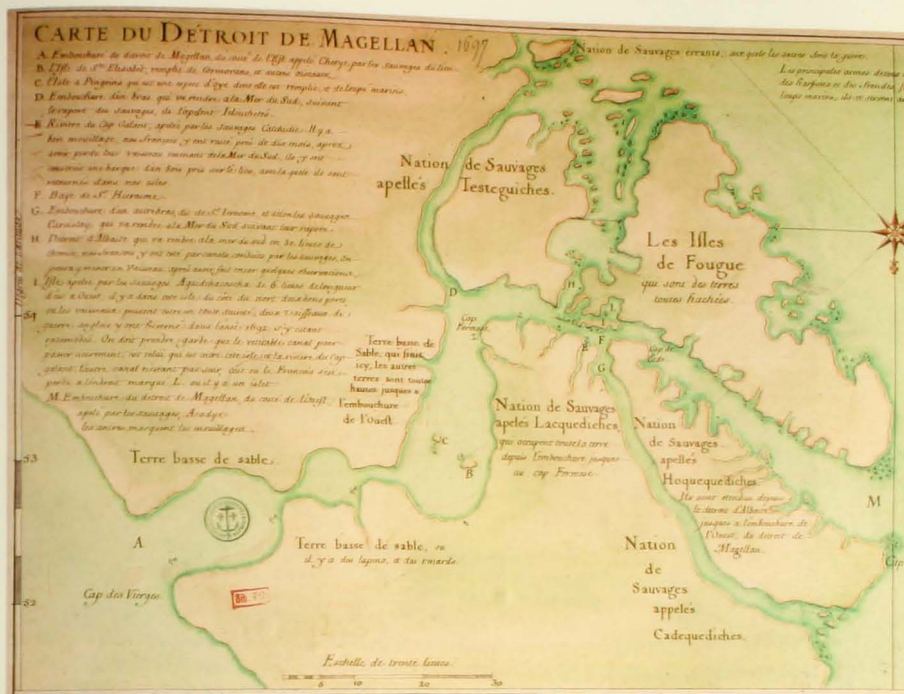 CARTE DU DÉTROIT DE MAGELLAN. 1697
A. Embouchure du détroit de Magellan, du costé de l'Est appelé par les Sauvages du lieu.
B. L'Isle de Ste Elisabet, remplie de Cormorans, et autres oiseaux.
C. L'Isle a Pinguins qui est une espece d'Oye dont elle est remplie, et de loups marins.
D. Embouchure d'un bras qui va rendre a la Mer du Sud, suivant
le raport des sauvages, ils l'apelent
E. Riviere du Cap Galant, apelée par les Sauvages Il y a
bon mouillage, nos françois y ont resté près de dix mois, apres
avoir perdu leur vaisseau venant de la Mer du Sud, ils y ont
construit une barque d'un bois pris sur le lieu, avec laquelle ils sont
retournés dans nos isles
F. Baye de St.
G. Embouchure d'un autre bras, dit de St. Jerome, et selon les sauvages
qui va rendre a la Mer du Sud suivant leur raport.
H. Détroit qui va rendre a la mer du sud en 30. lieues de
chemin, nos françois y ont esté par canots conduits par les sauvages, on
poura y mener un Vaisseau après avoir fait quelques observations.
I. Isle apelée par les Sauvages de 6 lieues de longueur
d'Est a Ouest, il y a dans cette isle, du côté du nort deux bons ports
ou les vaisseaux peuvent estre en toute seureté, deux Vaisseaux de
guerre anglois y ont hiverné dans l'année 1692. s'y estant
On doit prendre garde que le veritable canal pour
passer seurement, est celui qui est entre cette isle et la riviere du Cap
galant, l'autre canal n'estant pas seur, car les Francois s'est
perdu a l'endroit marqué L. ou il y a un islet
M. Embouchure du détroit de Magellan, du costé de l'Ouest,
apelé par les sauvages,
les ancres marquent les mouillages.
Nation de Sauvages errante, avec qui les autres sont en guerre.
Les principales armes de ces
des harpons et des frondes
loups marins,
Nation de Sauvages
apellés Testeguiches.
Les Isles
de Fougue
qui sont des terres
toutes hachées.
54
D
H
I
Cap
L
E
F
G
Terre basse de
Sable, qui finit
icy, les autres
terres sont toutes
hautes jusques a
l'embouchure
de l'Ouest.
Nation de Sauvages
apelés Lacquediches,
qui occupent toute la terre
depuis l'embouchure jusques
au cap
Nation
de Sauvages
apellés
Hoquequediches.
Ils sont étendus depuis
le détroit
jusques a l'embouchure de
l'Ouest, du détroit de
Magellan.
M
Cap
53
Terre basse de sable.
C
B
A
Terre basse de sable, ou
il y a des lapins, et des renards.
Nation
de
Sauvages
appelés
Cadequediches.
Cap des Vierges
52
Eschelle de trente lieues.
5 10 20 30